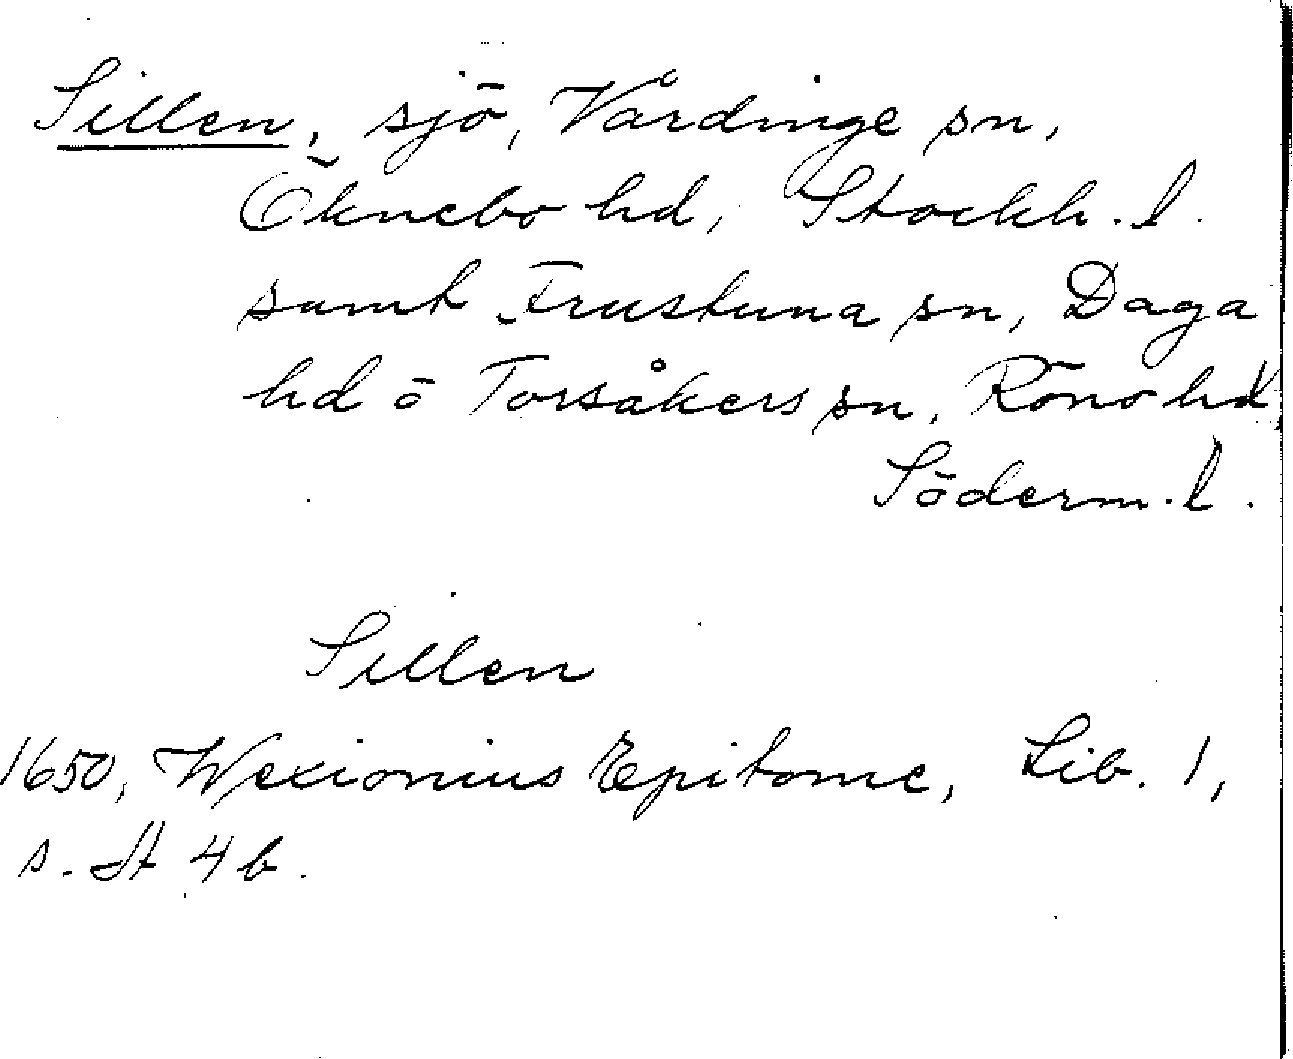 Sillen, sjö, Vårdinge sn,
Öknebo hd, Stockh. l.
samt Frustuna sn, Daga
hd o Torsåkers sn, Rönö hd,
Söderm. l.
Sillen
1650, Wexionius Epitome, Lib. 1,
s. A 4 b.